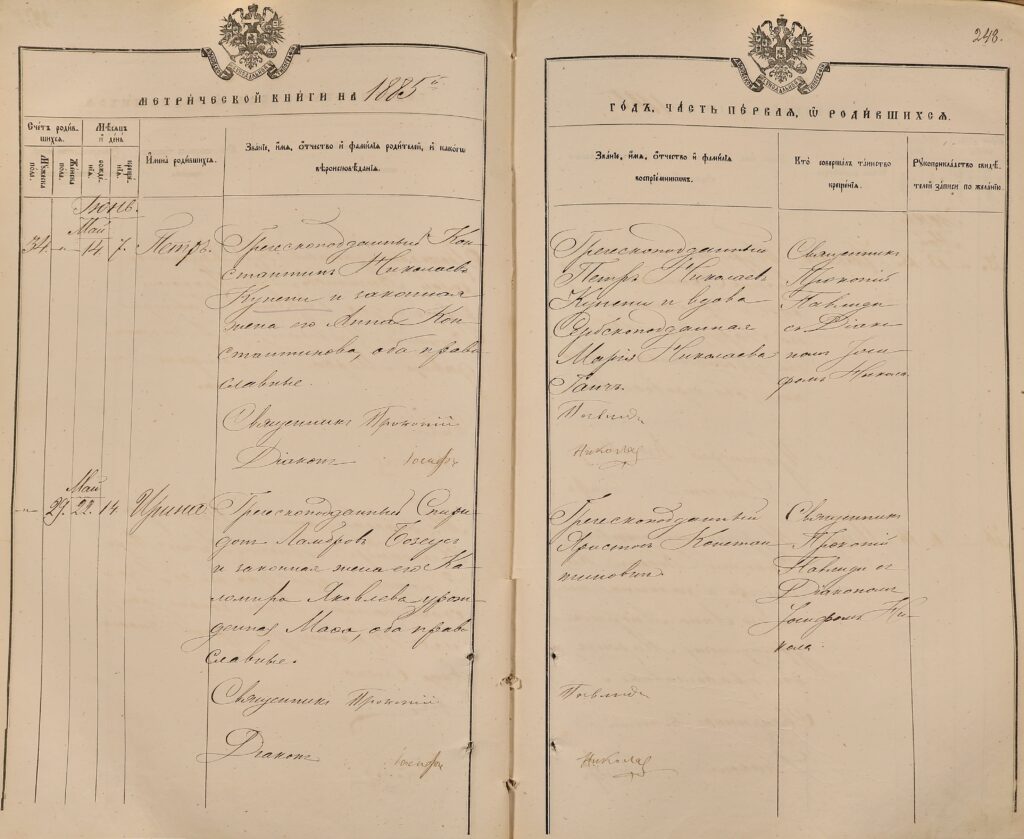 243.
МЕТРИ́ЧЕСКОЙ КНИ́ГИ НА 1885й
ГО́ДЪ, ЧА́СТЬ ПЕ́РВАЯ, Ѡ РОДИ́ВШИХСЯ.
Счетъ роди́в-
шихся.
Мѣсяцъ
и де́нь
Мужеска
пола.
Женска
пола.
рожде-
нія.
креще-
нія.
И́мена роди́вшихся.
Зва́ніе, и́мя, о́тчество и фами́лія роди́телей, и како́гѡ
вѣроисповѣ́данія.
Зва́ніе, и́мя, о́тчество и фами́лія
воспріе́мниковъ.
Кто̀ соверша́лъ та́инство
креще́нія.
Рукоприкла́дство свидѣ́-
телей за́писи по жела́нію.
Іюнь.
Май
34 " 14. 7. Петръ.
Греческоподданный Кон-
стантинъ Николаевъ
Купети и законная
жена его Анна Кон-
стантинова, оба право
славные.
Священникъ Прокопій
Діаконъ Іосифъ
Греческоподданный
Петръ Николаевъ
Купети и вдова
Сербскоподданная
Марія Николаева
Священникъ
Прокопій
Павлиди
съ Діако
номъ Іоси-
фомъ Никола
Николая
Май
" 29. 22. 14 Ирина.
Греческоподданный Спири
донъ Ламбровъ
и законная жена его Ка-
ломира Яковлева урож-
денная оба право
славные.
Священникъ Прокопій
Діаконъ Іосифъ
Греческоподданный
Константи
новичъ
Священникъ
Прокопій
Павлиди съ
Діакономъ
Іосифомъ Ни-
кола.
Николая